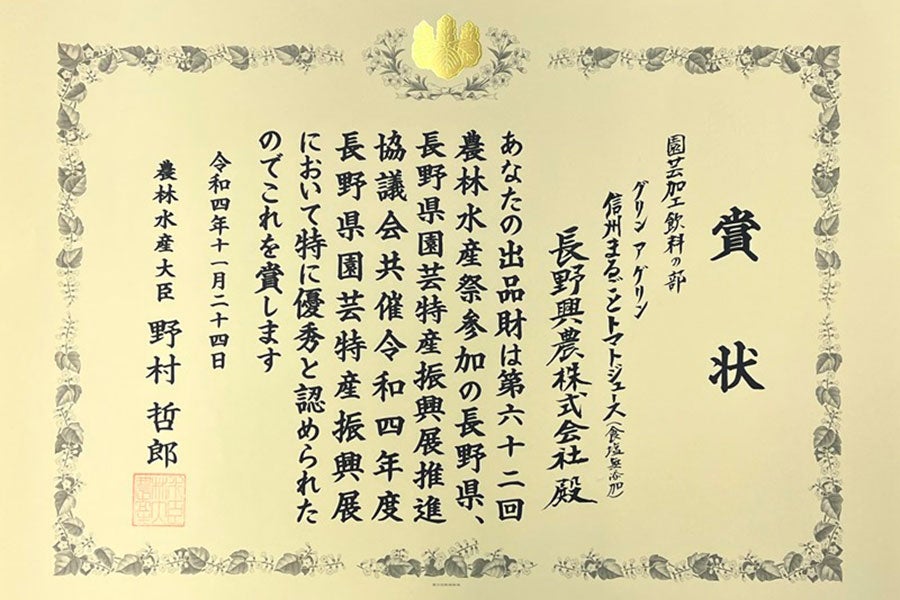 賞状
園芸加工飲料の部
グリン ア グリン
信州まるごとトマトジュース(食塩無添加)
長野興農株式会社 殿
あなたの出品財は第六十二回
農林水産祭参加の長野県、
長野県園芸特産振興展推進
協議会共催令和四年度
長野県園芸特産振興展
において特に優秀と認められた
のでこれを賞します
令和四年十一月二十四日
農林水産大臣 野村 哲郎